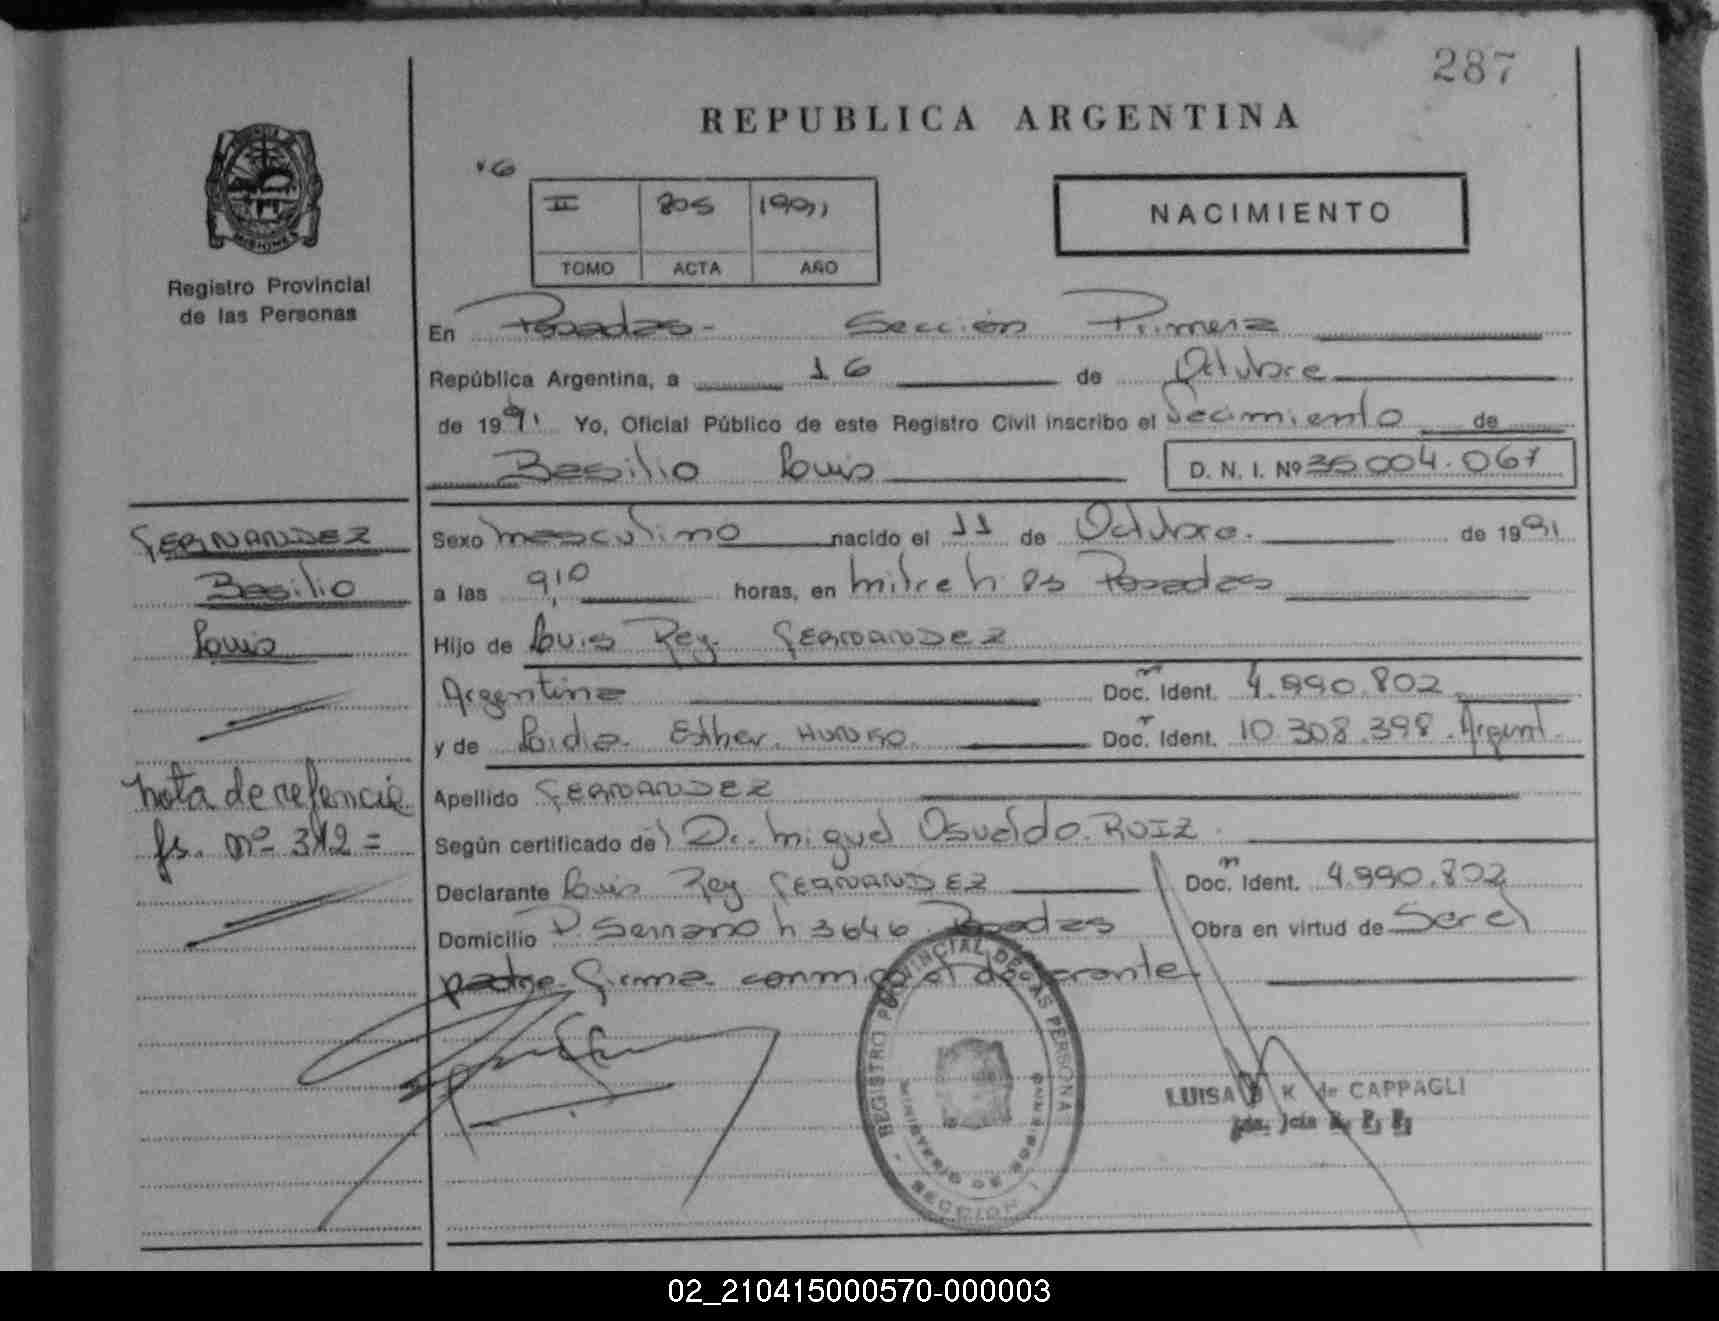 287
REPUBLICA ARGENTINA
MISIONES
Registro Provincial
de las Personas
II 205 1991
TOMO ACTA AÑO
NACIMIENTO
En Posadas- Sección Primera
República Argentina, a 16 de Octubre
de 1991 Yo, Oficial Público de este Registro Civil inscribo el Nacimiento de
Basilio Louis D. N. I. Nº 36.004.067
FERNANDEZ
Basilio
Louis
Sexo masculino nacido el 11 de Octubre. de 1991
a las 9,10 horas, en mitre h Posadas
Hijo de Louis Rey. FERNANDEZ
Argentina Doc. Ident. 4.990.802
y de Lidia Esther Doc. Ident. 10.308.398. Argent.
nota de refencia
fs. nº 312 =
Apellido FERNANDEZ
Según certificado de Dr. Miguel Osvaldo. RUIZ.
Declarante Louis Rey FERNANDEZ Doc. Ident. 4.990.802
Domicilio P. Serrano h 3646. Posadas Obra en virtud de Ser el
padre firma conmigo el declarante
REGISTRO PROVINCIAL DE LAS PERSONAS
MINISTERIO DE GOBIERNO
SECCION 1
LUISA K de CAPPAGLI
02_210415000570-000003